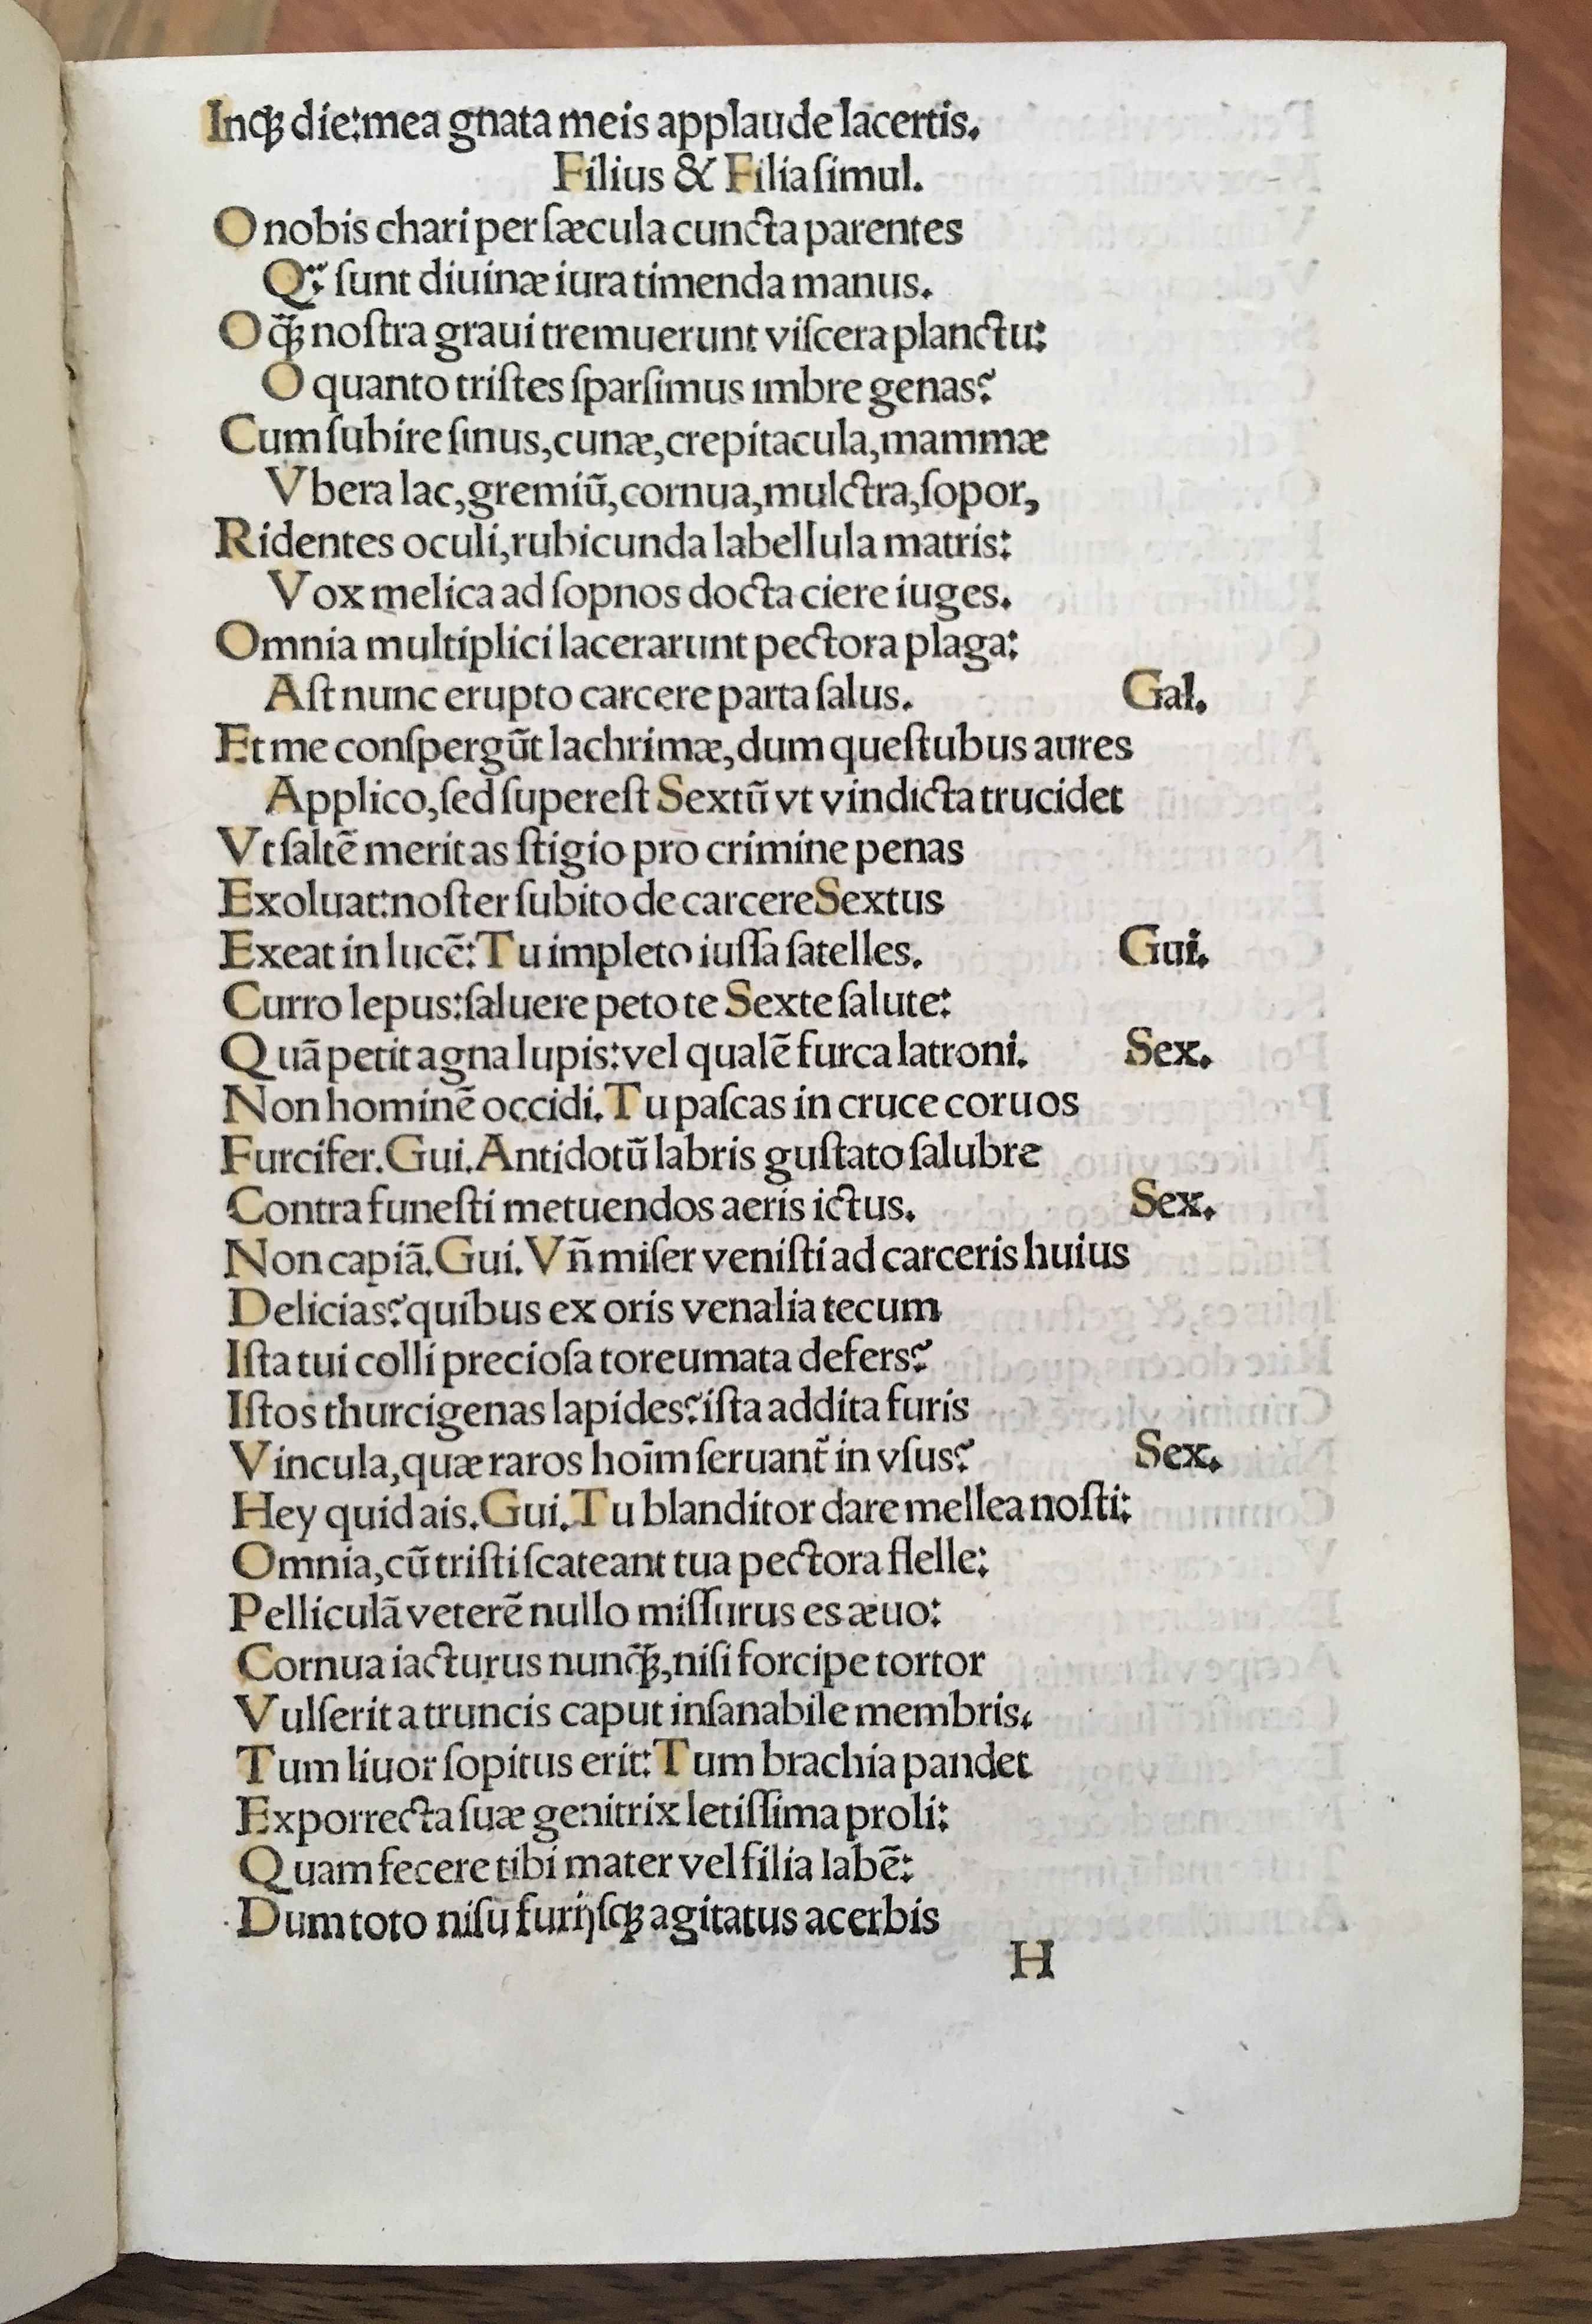 Inq̃ȝ die:mea gnata meis applaude lacertis.
Filius & Filia ſimul.
O nobis chari per ſæcula cuncta parentes
Qꝫ ſunt diuinæ iura timenda manus.
O q̃ȝ noſtra graui tremuerunt viſcera planctu:
O quanto triſtes ſparſimus imbre genas?
Cum ſubire ſinus,cunæ,crepitacula,mammæ
Vbera lac,gremiũ,cornua,mulctra,ſopor,
Ridentes oculi,rubicunda labellula matris:
Vox melica ad ſopnos docta ciere iuges.
Omnia multiplici lacerarunt pectora plaga:
Aſt nunc erupto carcere parta ſalus. Gal.
Et me conſpergũt lachrimæ,dum queſtubus aures
Applico,ſed ſupereſt Sextũ vt vindicta trucidet
Vt ſaltẽ meritas ſtigio pro crimine penas
Exoluat:noſter ſubito de carcere Sextus
Exeat in lucẽ:Tu impleto iuſſa ſatelles. Gui.
Curro lepus:ſaluere peto te Sexte ſalute:
Quã petit agna lupis:vel qualẽ furca latroni. Sex.
Non hominẽ occidi.Tu paſcas in cruce coruos
Furcifer.Gui.Antidotũ labris guſtato ſalubre
Contra funeſti metuendos aeris ictus. Sex.
Non capiã.Gui.Vñ miſer veniſti ad carceris huius
Delicias?quibus ex oris venalia tecum
Iſta tui colli precioſa toreumata defers?
Iſtos thurcigenas lapides?iſta addita furis
Vincula,quæ raros hoĩm ſeruant̃ in vſus? Sex.
Hey quid ais.Gui.Tu blanditor dare mellea noſti:
Omnia,cũ triſti ſcateant tua pectora flelle:
Pelliculã veterẽ nullo miſſurus es æuo:
Cornua iacturus nunq̃ȝ,niſi forcipe tortor
Vulſerit a truncis caput inſanabile membris.
Tum liuor ſopitus erit:Tum brachia pandet
Exporrecta ſuæ genitrix letiſſima proli:
Quam fecere tibi mater vel filia labẽ:
Dum toto niſu furijſqȝ agitatus acerbis
H